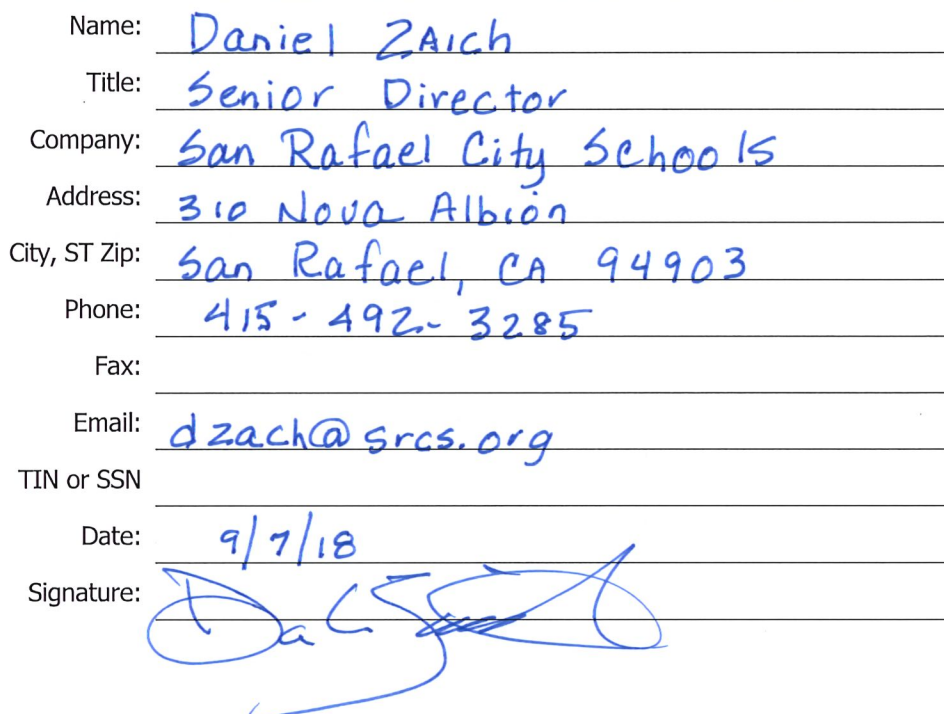 Name: Daniel ZAich
Title: Senior Director
Company: San Rafael City Schools
Address: 310 Nova Albion
City, ST Zip: San Rafael, CA 94903
Phone: 415-492-3285
Fax:
Email: dzach@srcs.org
TIN or SSN
Date: 9/7/18
Signature: